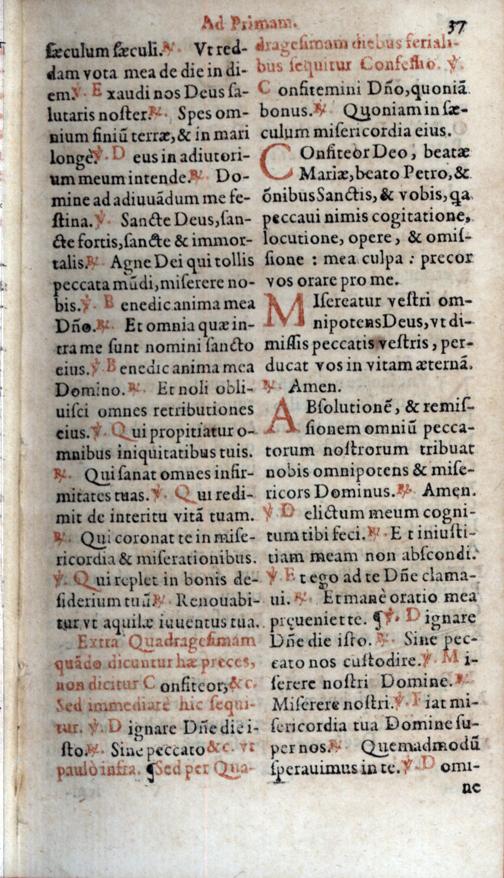 Ad Primam. 37
sæculum sæculi. ℟. Vt red-
dam vota mea de die in di-
em. ℣. Exaudi nos Deus sa-
lutaris noster. ℟. Spes om-
nium finiũ terræ, & in mari
longe. ℣. Deus in adiutori-
um meum intende. ℟. Do-
mine ad adiuuãdum me fe-
stina. ℣. Sancte Deus, san-
cte fortis, sancte & immor-
talis. ℟. Agne Dei qui tollis
peccata mũdi, miserere no-
bis. ℣. Benedic anima mea
Dño. ℟. Et omnia quæ in-
tra me sunt nomini sancto
eius. ℣. Benedic anima mea
Domino. ℟. Et noli obli-
uisci omnes retributiones
eius. ℣. Qui propitiatur o-
mnibus iniquitatibus tuis.
℟. Qui sanat omnes infir-
mitates tuas. ℣. Qui redi-
mit de interitu vitã tuam.
℟. Qui coronat te in mise-
ricordia & miserationibus.
℣. Qui replet in bonis de-
siderium tuũ ℟. Renouabi-
tur vt aquilæ iuuentus tua.
Extra Quadragesimam
quãdo dicuntur hæ preces,
non dicitur Confiteor, &c.
Sed immediatè hic sequi-
tur. ℣. Dignare Dñe die i-
sto. ℟. Sine peccato &c. vt
paulò infra. ¶Sed per Qua-
dragesimam diebus feriali-
bus sequitur Confessio. ℣.
Confitemini Dño, quoniã
bonus. ℟. Quoniam in sæ-
culum misericordia eius.
COnfiteor Deo, beatæ
Mariæ, beato Petro, &
õnibus Sanctis, & vobis, qa
peccaui nimis cogitatione,
locutione, opere, & omis-
sione : mea culpa : precor
vos orare pro me.
MIsereatur vestri om-
nipotens Deus, vt di-
missis peccatis vestris, per-
ducat vos in vitam æternã.
℟. Amen.
ABsolutionẽ, & remis-
sionem omniũ pecca-
torum nostrorum tribuat
nobis omnipotens & mise-
ricors Dominus. ℟. Amen.
℣. Delictum meum cogni-
tum tibi feci. ℟. Et iniusti-
tiam meam non abscondi.
℣. Et ego ad te Dñe clama-
ui. ℟. Et manè oratio mea
præueniet te. ¶℣. Dignare
Dñe die isto. ℟. Sine pec-
cato nos custodire. ℣. Mi-
serere nostri Domine. ℟.
Miserere nostri. ℣. Fiat mi-
sericordia tua Domine su-
per nos. ℟. Quemadmodũ
sperauimus in te. ℣. Domi-
ne